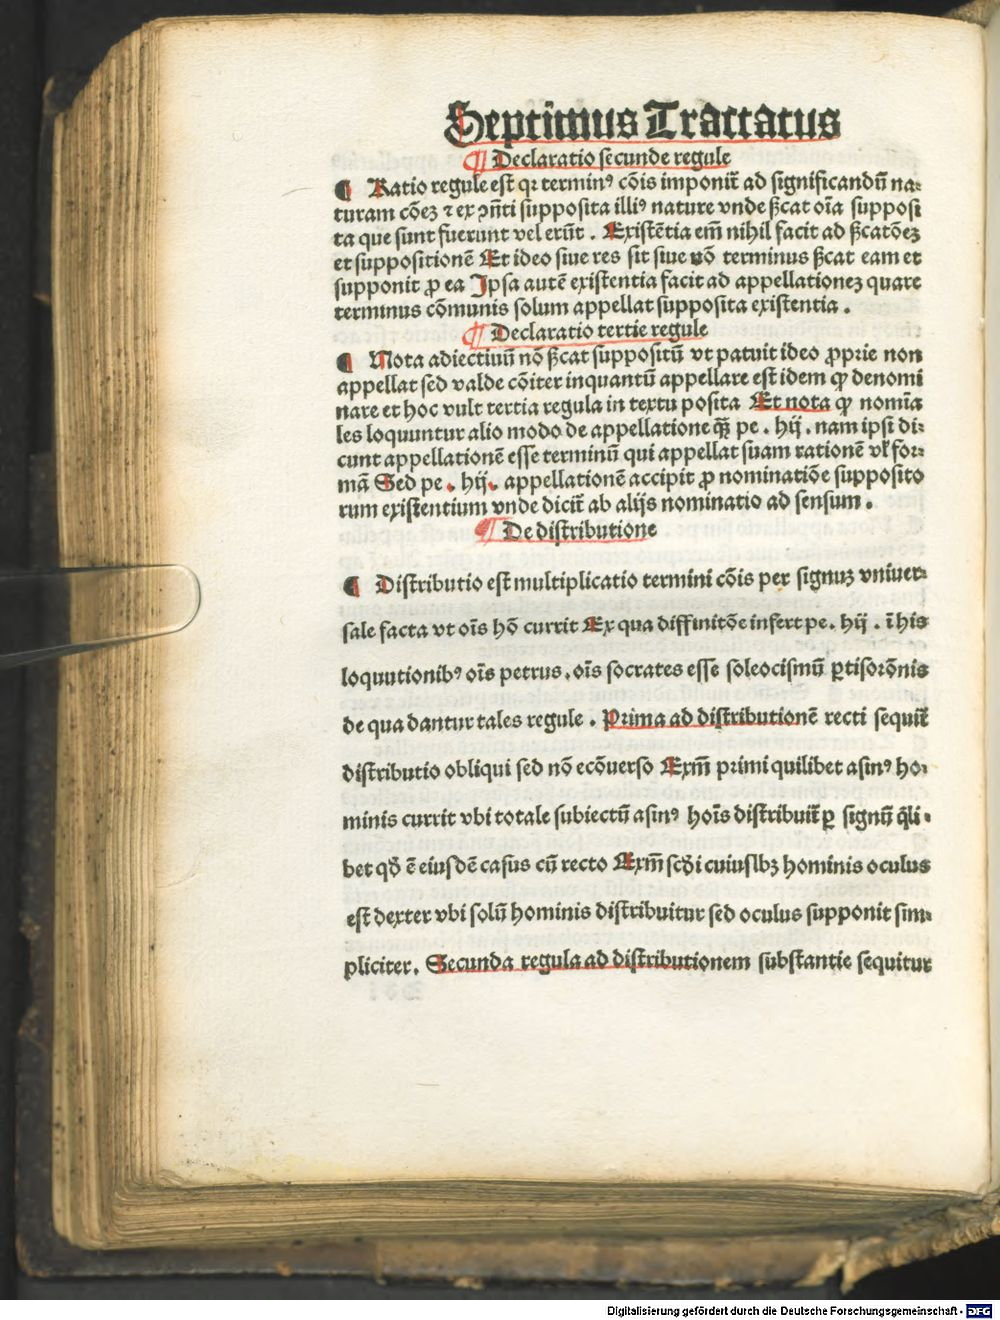 Septimus Tractatus
¶ Declaratio secunde regule
¶ Ratio regule est qꝛ terminꝰ cōis imponit᷑ ad significandū na⸗
turam cōeꝫ ⁊ ex ↄn̄ti supposita illiꝰ nature vnde ſcat oīa supposi
ta que sunt fuerunt vel erūt . Existētia em̄ nihil facit ad ſcatōeꝫ
et suppositionē Et ideo siue res sit siue nō terminus ſcat eam et
supponit ꝓ ea Ipsa autē existentia facit ad appellationeꝫ quare
terminus cōmunis solum appellat supposita existentia .
¶ Declaratio tertie regule
¶ Nota adiectiuū nō ſcat suppositū vt patuit ideo ꝓpꝛie non
appellat sed valde cōiter inquantū appellare est idem qꝙ denomi
nare et hoc vult tertia regula in textu posita Et nota qꝙ nomīa
les loquuntur alio modo de appellatione qꝫ̄ pe . hij . nam ipsi di⸗
cunt appellationē esse terminū qui appellat suam rationē vl̕ foꝛ⸗
mā Sed pe . hij . appellationē accipit ꝓ nominatiōe supposito
rum existentium vnde dicit᷑ ab alijs nominatio ad sensum .
¶ De distributione
¶ Distributio est multiplicatio termini cōis per signuꝫ vniuer⸗
sale facta vt oīs hō currit Ex qua diffinitōe infert pe . hij . ī his
loquutionibꝰ oīs petrus . oīs socrates esse soleocismū ꝑtisorōnis
de qua dantur tales regule . Prima ad distributionē recti sequit᷑
distributio obliqui sed nō ecōuerso Exm̄ primi quilibet asinꝰ ho⸗
minis currit vbi totale subiectū asinꝰ hoīs distribuit᷑ ꝑ signū q̄li⸗
bet qd̕ ē eiusdē casus cū recto Exm̄ scd̕i cuiuslibꝫ hominis oculus
est dexter vbi solū hominis distribuitur sed oculus supponit sim⸗
pliciter . Secunda regula ad distributionem substantie sequitur
Digitalisierung gefördert durch die Deutsche Forschungsgemeinschaft - DFG